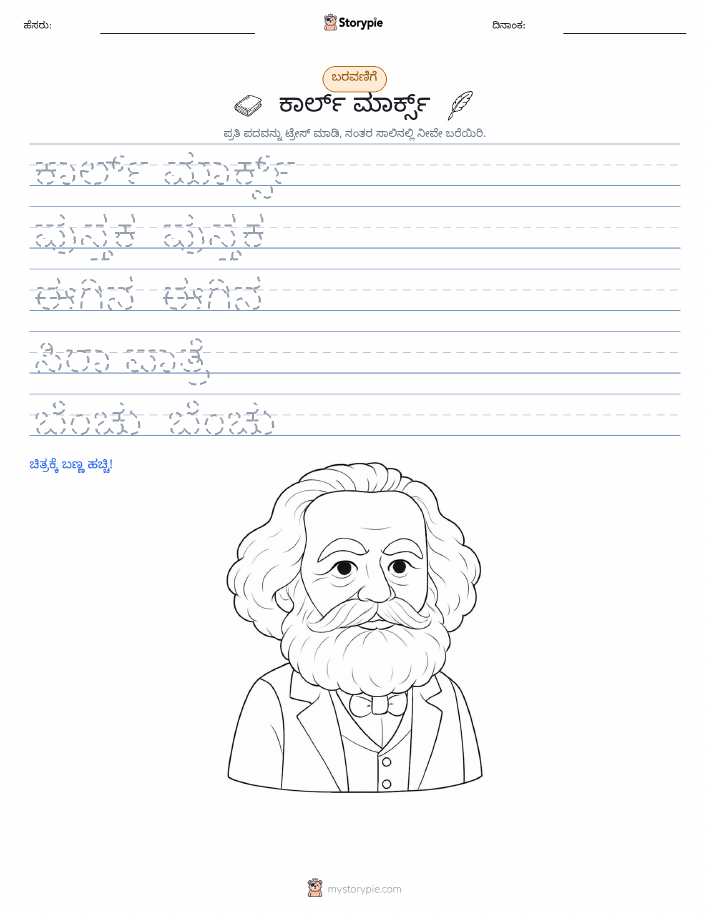 ಹೆಸರು:
Storypie
ದಿನಾಂಕ:
ಬರವಣಿಗೆ
ಕಾರ್ಲ್ ಮಾರ್ಕ್ಸ್
ಪ್ರತಿ ಪದವನ್ನು ಟ್ರೇಸ್ ಮಾಡಿ, ನಂತರ ಸಾಲಿನಲ್ಲಿ ನೀವೇ ಬರೆಯಿರಿ.
ಕಾರ್ಲ್ ಮಾರ್ಕ್ಸ್
ಪುಸ್ತಕ ಪುಸ್ತಕ
ಈಗಿನ ಈಗಿನ
ಸಿರಾ ಪಾತ್ರೆ
ಬೆಂಚು ಬೆಂಚು
ಚಿತ್ರಕ್ಕೆ ಬಣ್ಣ ಹಚ್ಚಿ!
mystorypie.com